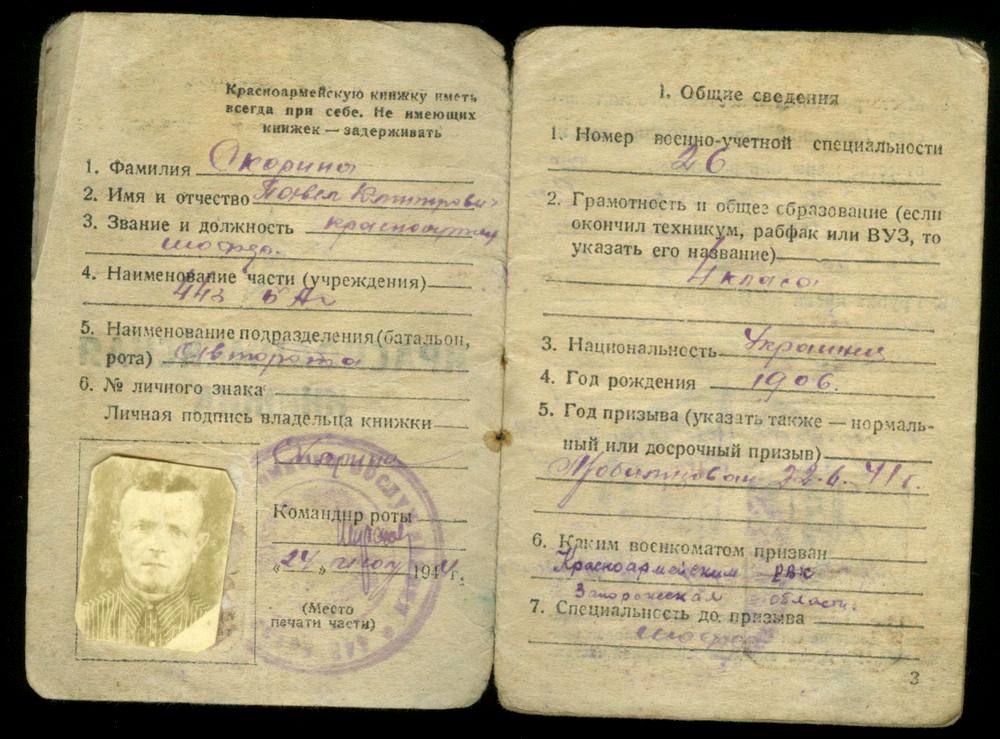 Красноармейскую книжку иметь
всегда при себе. Не имеющих
книжек — задерживать
1. Фамилия Скорина
2. Имя и отчество Павел
3. Звание и должность красноарм
шофер.
4. Наименование части (учреждения)
443
5. Наименование подразделения (батальон,
рота) Авторота
6. № личного знака
Личная подпись владельца книжки
Скорина
Командир роты
„24" 194 г.
(Место
печати части)
1. Общие сведения
1. Номер военно-учетной специальности
26
2. Грамотность и общее образование (если
окончил техникум, рабфак или ВУЗ, то
указать его название)
4 класса
3. Национальность Украинец
4. Год рождения 1906.
5. Год призыва (указать также — нормаль-
ный или досрочный призыв)
Мобилизован 22.6.41 г.
6. Каким военкоматом призван
Красноармейским РВК
Запорожская области.
7. Специальность до призыва
шофер
3